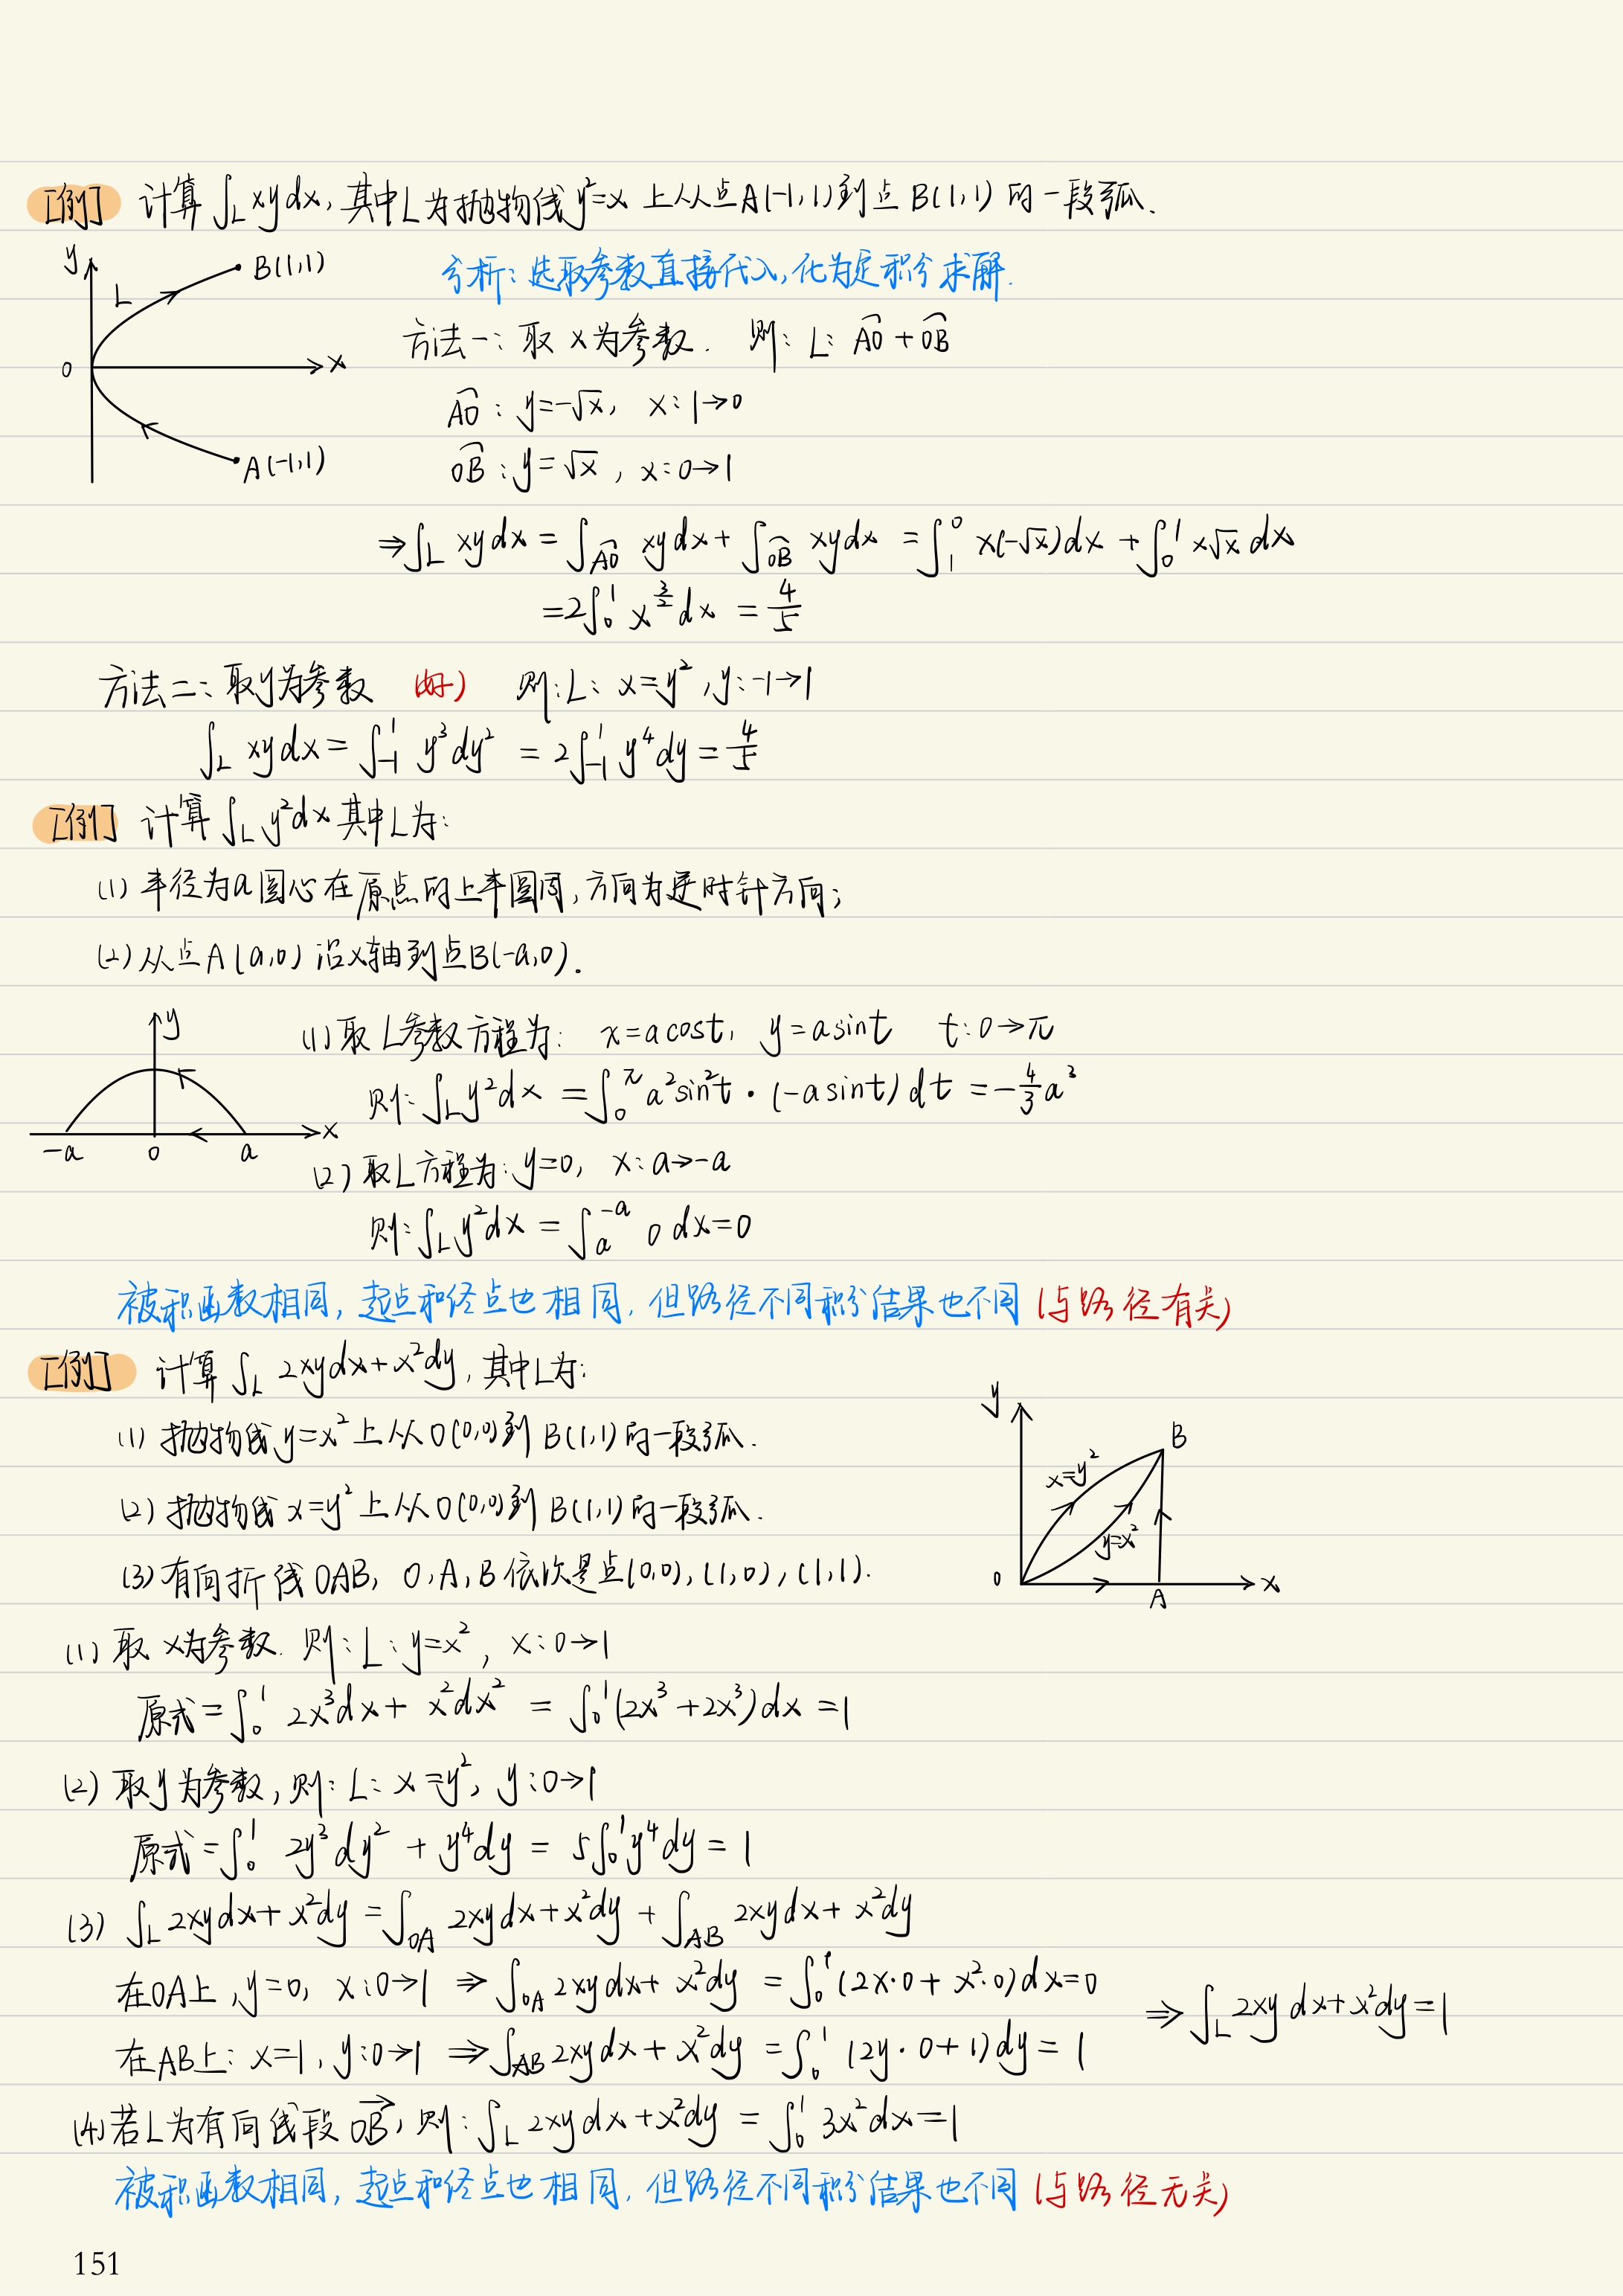 [例] 计算 ∫_L xydx, 其中L为抛物线y²=x 上从点A(-1,1)到点B(1,1)的一段弧.
y
B(1,1)
L
0
x
A(-1,1)
分析: 选取参数直接代入, 化为定积分求解.
方法一: 取 x为参数. 则: L: A͡O + O͡B
A͡O : y=-√x, x: 1→0
O͡B : y=√x, x: 0→1
⇒∫_L xydx = ∫_{A͡O} xydx + ∫_{O͡B} xydx = ∫_1^0 x(-√x)dx + ∫_0^1 x√x dx
=2∫_0^1 x^{3/2} dx = 4/5
方法二: 取y为参数 (好) 则: L: x=y², y: -1→1
∫_L xydx = ∫_{-1}^1 y³dy² = 2∫_{-1}^1 y⁴dy = 4/5
[例] 计算 ∫_L y²dx 其中L为:
(1) 半径为a圆心在原点的上半圆周, 方向为逆时针方向;
(2) 从点A(a,0) 沿x轴到点B(-a,0).
y
x
-a 0 a
(1) 取 L参数方程为: x=acost, y=asint t: 0→π
则: ∫_L y²dx = ∫_0^π a²sin²t · (-asint) dt = -4/3 a³
(2) 取L方程为: y=0, x: a→-a
则: ∫_L y²dx = ∫_a^{-a} 0 dx=0
被积函数相同, 起点和终点也相同, 但路径不同积分结果也不同 (与路径有关)
[例] 计算 ∫_L 2xydx+x²dy, 其中L为:
(1) 抛物线y=x²上从O(0,0)到B(1,1)的一段弧.
(2) 抛物线x=y²上从O(0,0)到B(1,1)的一段弧.
(3) 有向折线OAB, O,A,B依次是点(0,0), (1,0), (1,1).
y
B
x=y²
y=x²
0
A
x
(1) 取 x为参数. 则: L: y=x², x: 0→1
原式=∫_0^1 2x³dx + x²dx² = ∫_0^1 (2x³+2x³)dx =1
(2) 取y为参数, 则: L: x=y², y: 0→1
原式=∫_0^1 2y³dy² + y⁴dy = 5∫_0^1 y⁴dy = 1
(3) ∫_L 2xydx+x²dy = ∫_{OA} 2xydx+x²dy + ∫_{AB} 2xydx+x²dy
在OA上, y=0, x: 0→1 ⇒ ∫_{OA} 2xydx+x²dy = ∫_0^1 (2x·0+x²·0)dx=0
在AB上: x=1, y: 0→1 ⇒ ∫_{AB} 2xydx+x²dy = ∫_0^1 (2y·0+1)dy = 1
⇒ ∫_L 2xydx+x²dy=1
(4) 若L为有向线段 O⃗B, 则: ∫_L 2xydx+x²dy = ∫_0^1 3x²dx=1
被积函数相同, 起点和终点也相同, 但路径不同积分结果也不同 (与路径无关)
151